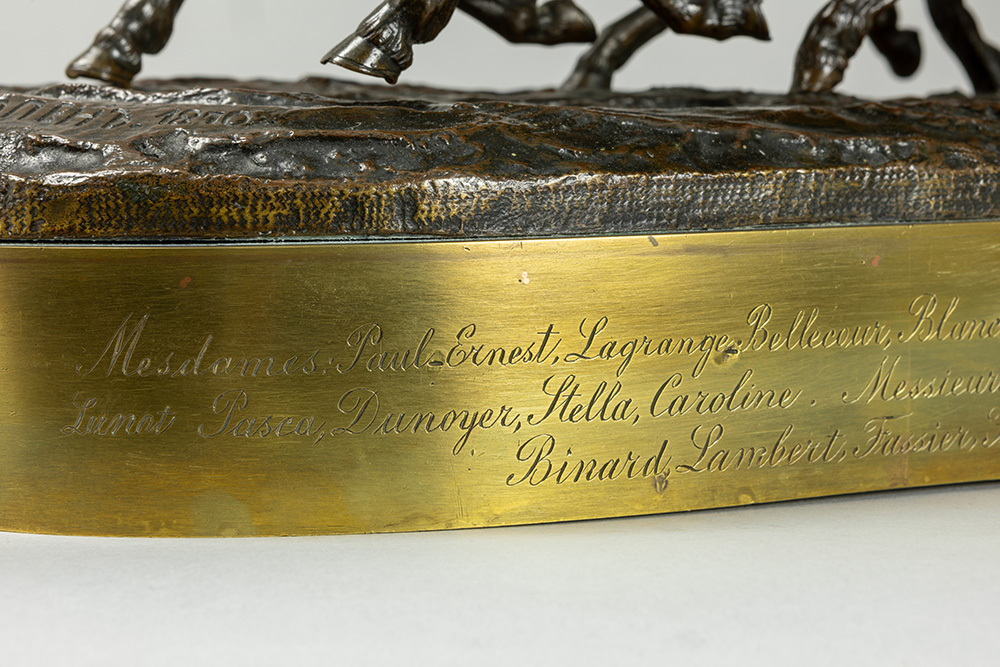 Mesdames: Paul-Ernest, Lagrange-Bellecour, Blanc
Lunot Pasca, Dunoyer, Stella, Caroline. Messieur
Binard, Lambert, Fassier,